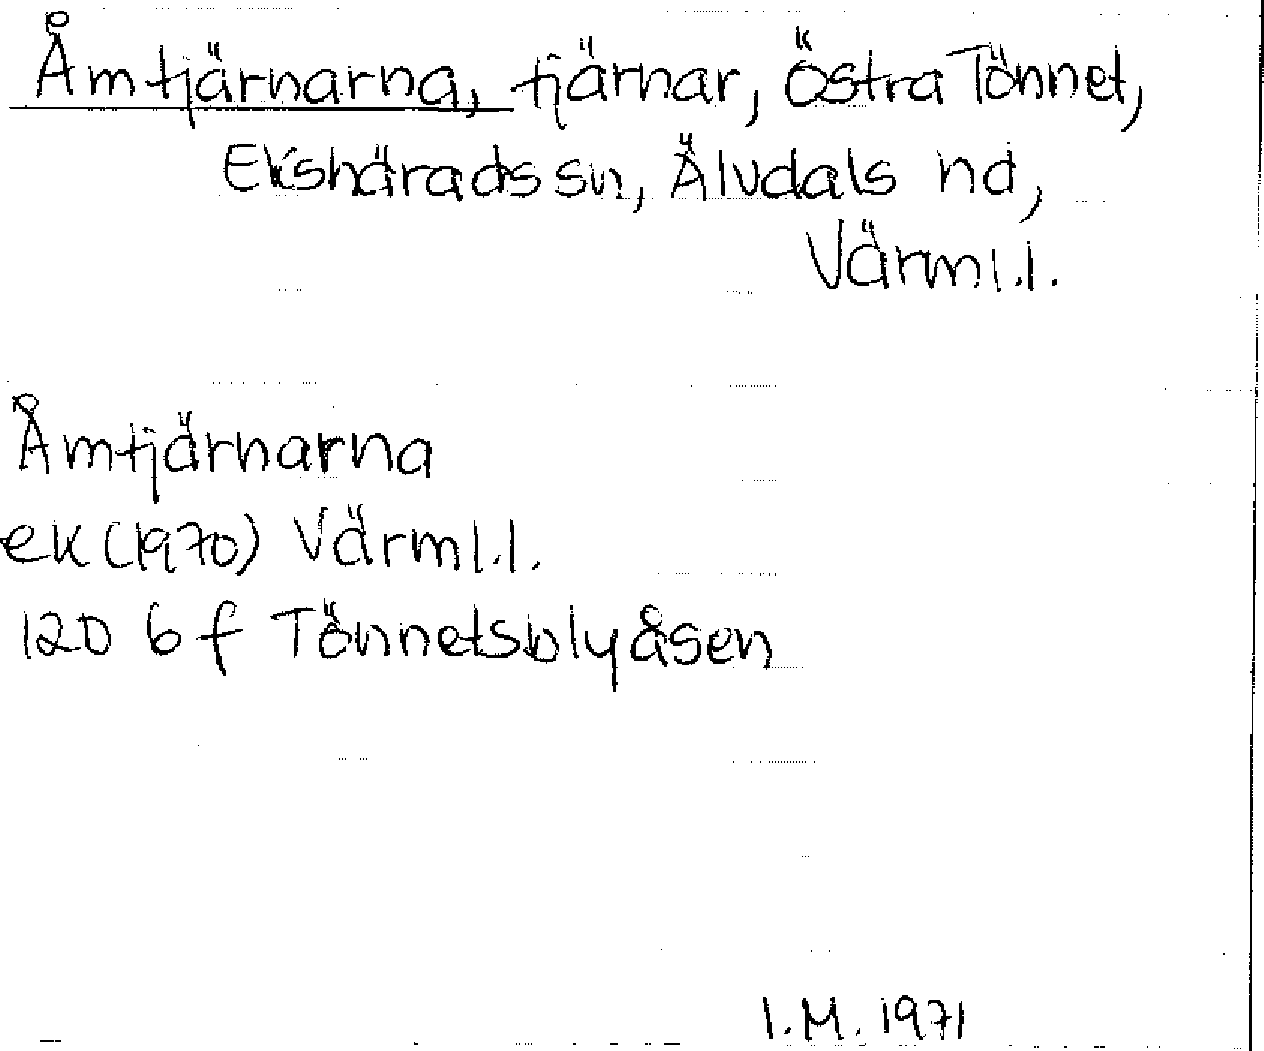 Åmtjärnarna, tjärnar, Östra Tönnet,
Ekshärads sn, Älvdals hd,
Värml.l.
Åmtjärnarna
ek (1970) Värml.l.
12D 6f Tönnetsblyåsen
I.M. 1971